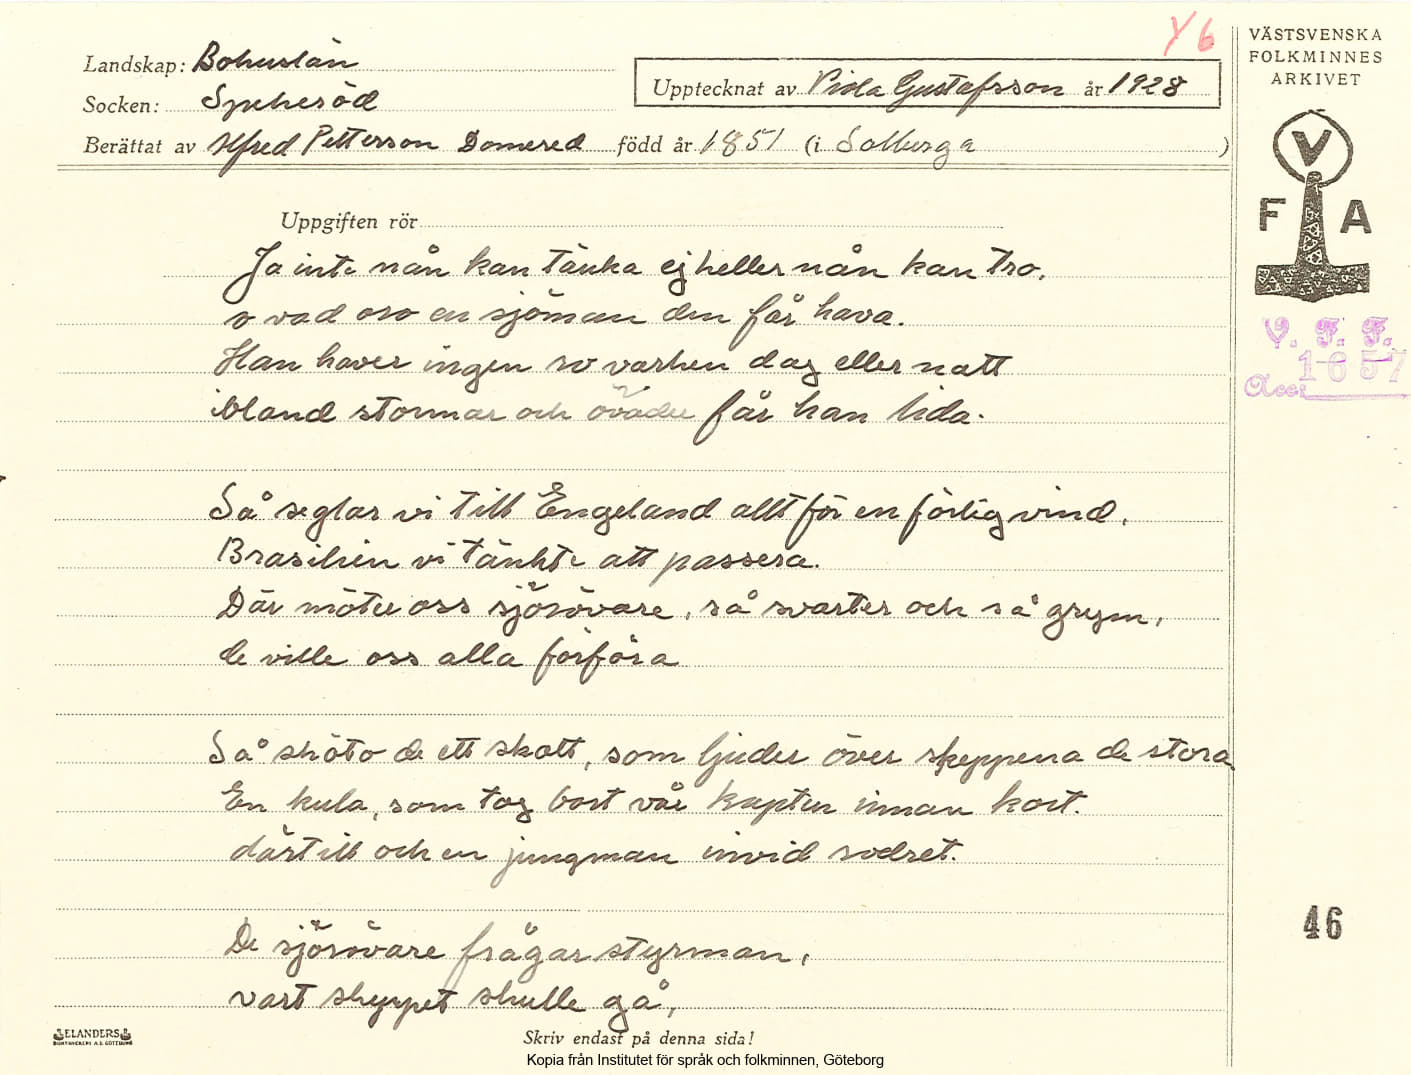 Y 6
VÄSTSVENSKA
FOLKMINNES
ARKIVET
Landskap: Bohuslän
Socken: Spekeröd
Upptecknat av Viola Gustafsson år 1928
Berättat av Alfred Petterson Domered född år 1851 (i Solberga )
V
F A
Uppgiften rör
V. F. F.
Acc: 1657
Ja inte nån kan tänka ej heller nån kan tro,
o vad oro en sjöman den får hava.
Han haver ingen ro varken dag eller natt
ibland stormar och oväder får han lida.
Så seglar vi till Engeland allt för en förlig vind,
Brasilien vi tänkte att passera.
Där möter oss sjörövare, så svarter och så grym,
de ville oss alla förföra
Så sköto de ett skott, som ljuder över skeppena de stora
En kula, som tog bort vår kapten innan kort.
därtill och en jungman invid rodret.
46
De sjörövare frågar styrman,
vart skeppet skulle gå,
ELANDERS
BOKTRYCKERI A.B. GÖTEBORG
Skriv endast på denna sida!
Kopia från Institutet för språk och folkminnen, Göteborg